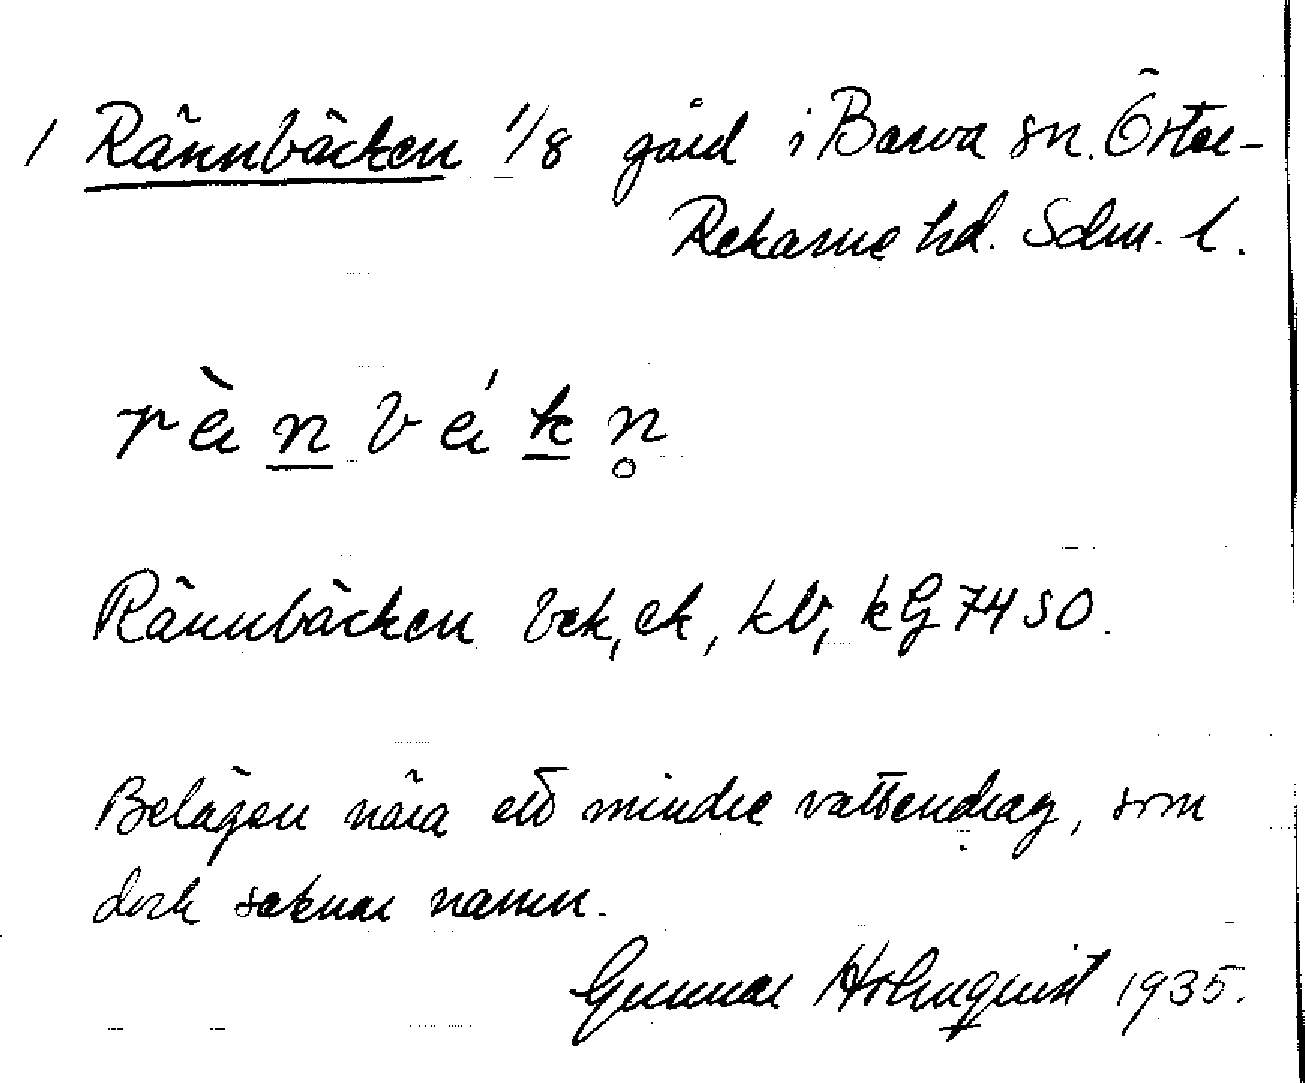 1 Rännbäcken 1/8 gård i Barva sn. Öster-
Rekarne hd. Södm. l.
rä̀n̲bä́k̲n̥
Rännbäcken bek, ek, kb, kG 7450.
Belägen nära ett mindre vattendrag, som
dock saknar namn.
Gunnar Holmquist 1935.